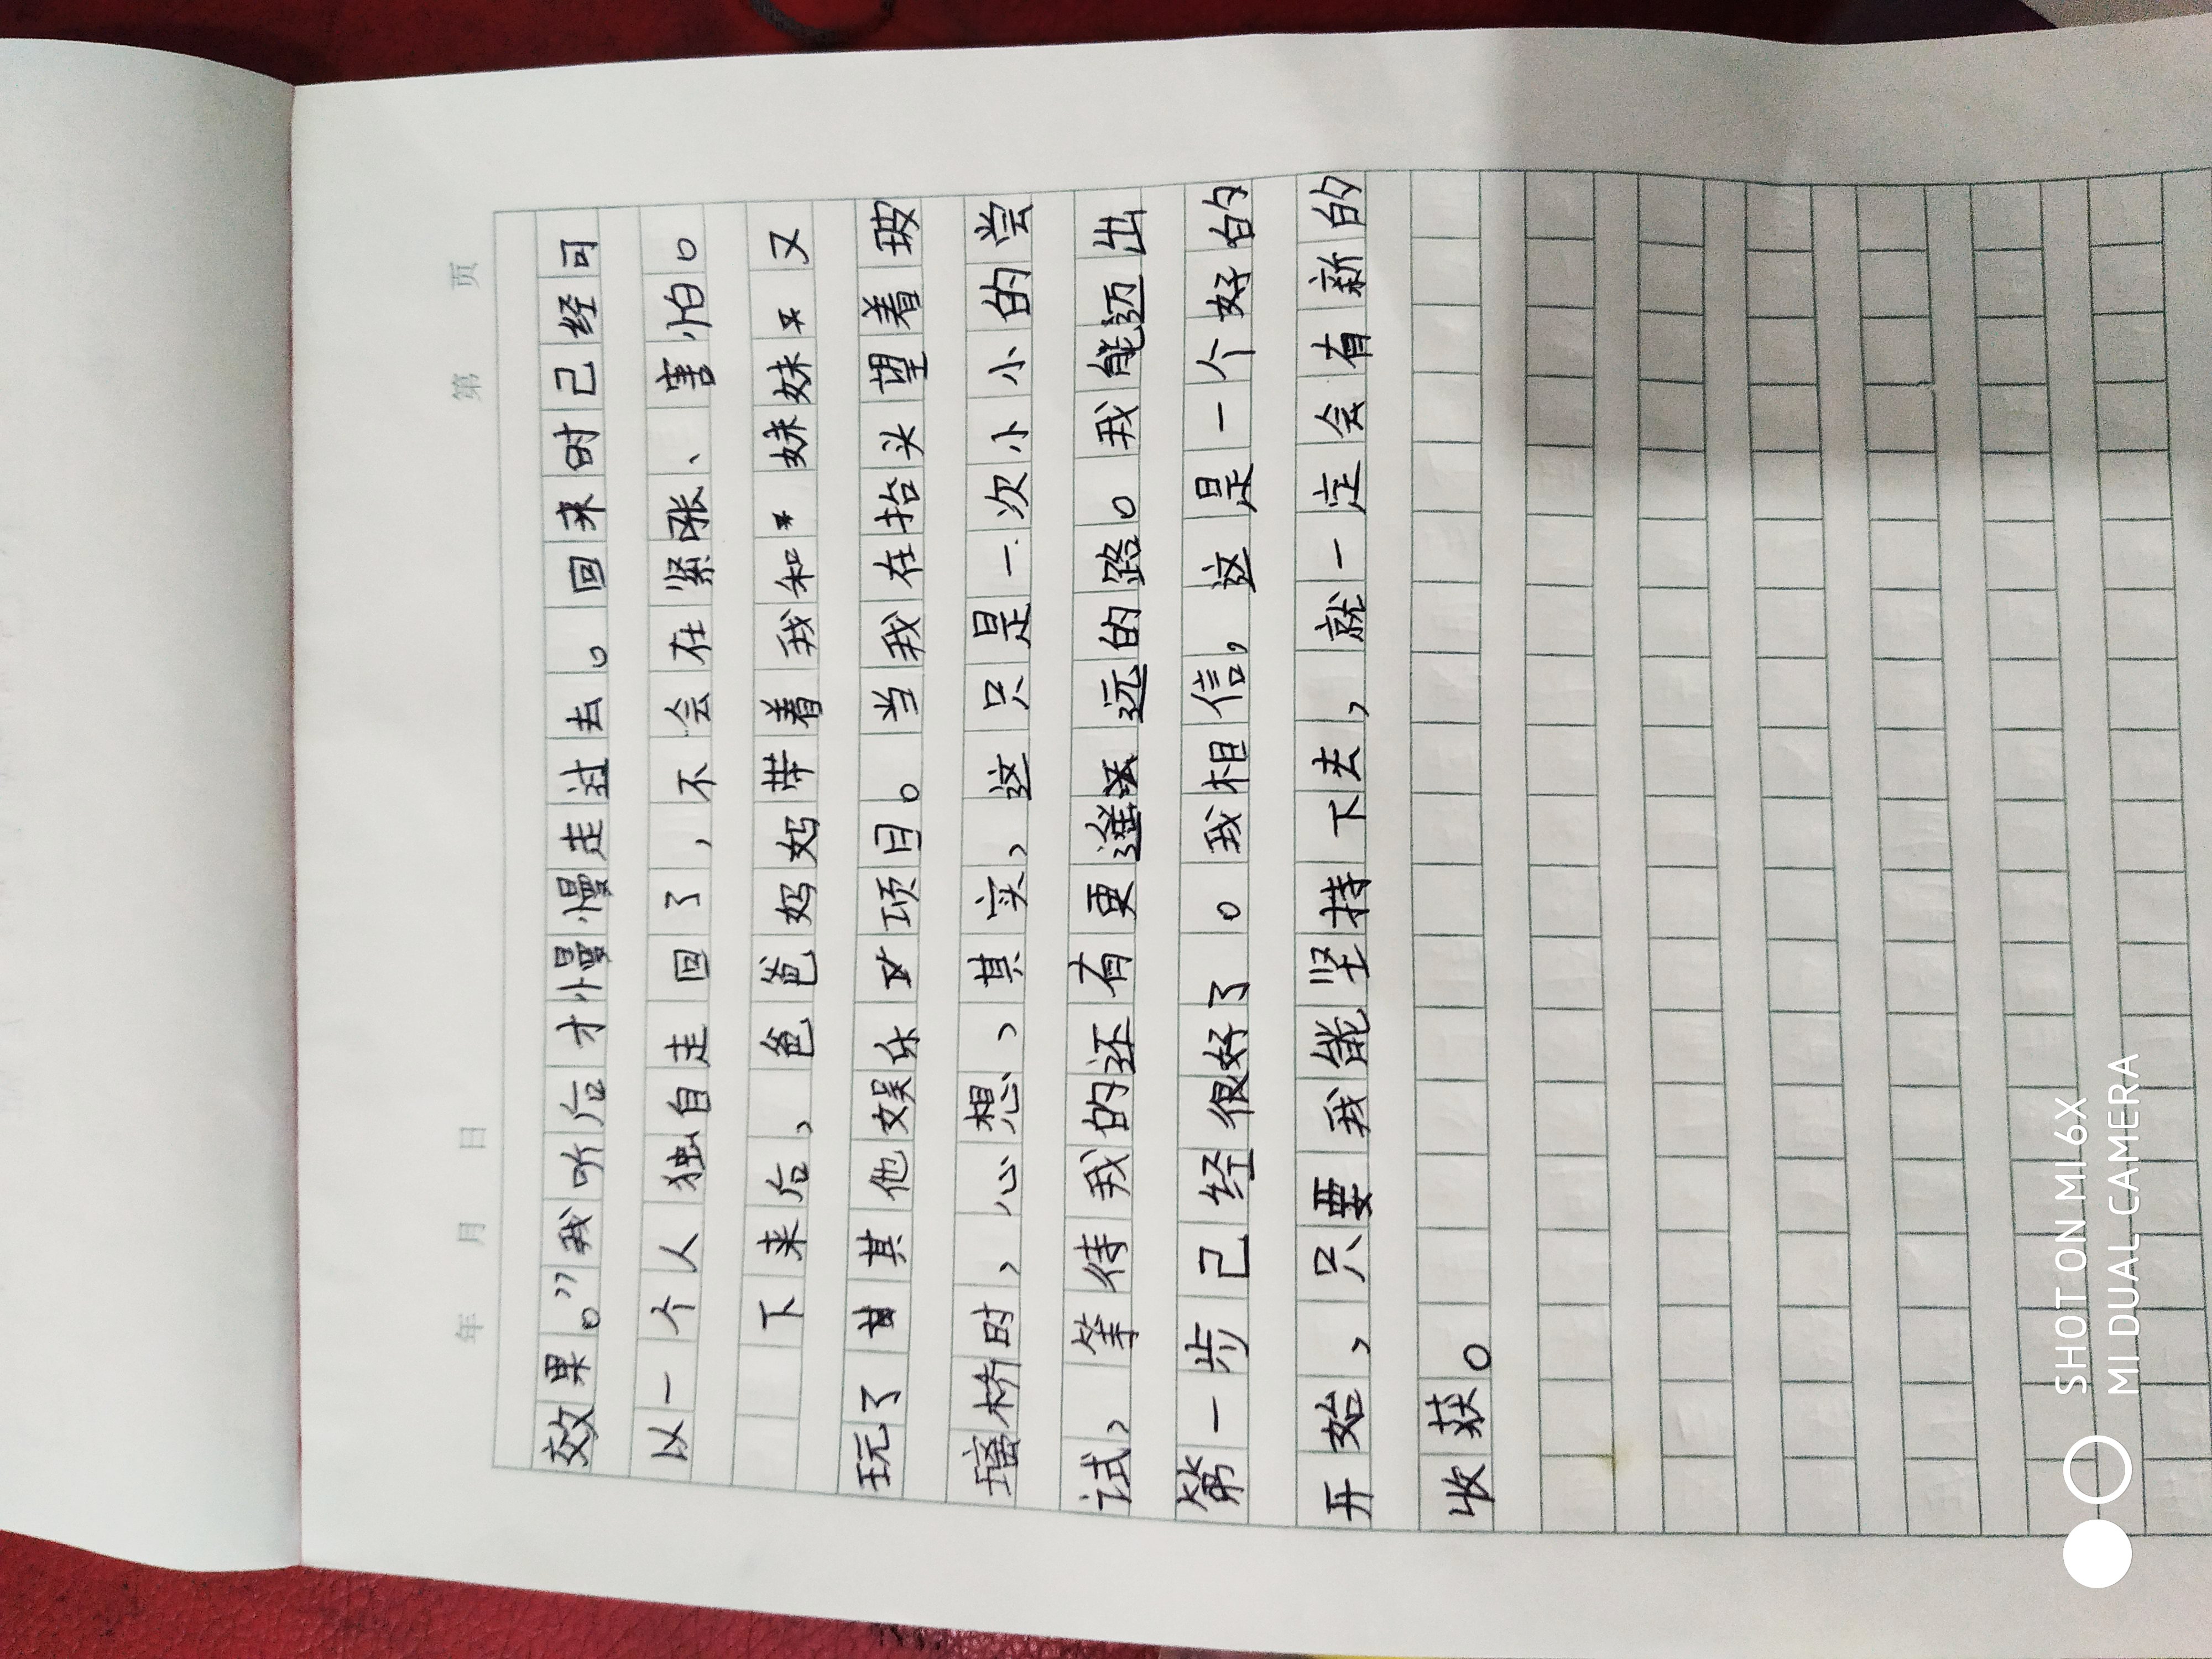 年 月 日 第 页
效果。”我听后才慢慢走过去。回来时己经可
以一个人独自走回了，不会在紧张、害怕。
下来后，爸爸妈妈带着我和妹妹又
玩了其他娱乐项目。当我在抬头望着玻
璃桥时，心想，其实，这只是一次小小的尝
试，等待我的还有更远的路。我能迈出
第一步己经很好了。我相信，这是一个好的
开始，只要我能坚持下去，就一定会有新的
收获。
SHOT ON MI 6X
MI DUAL CAMERA